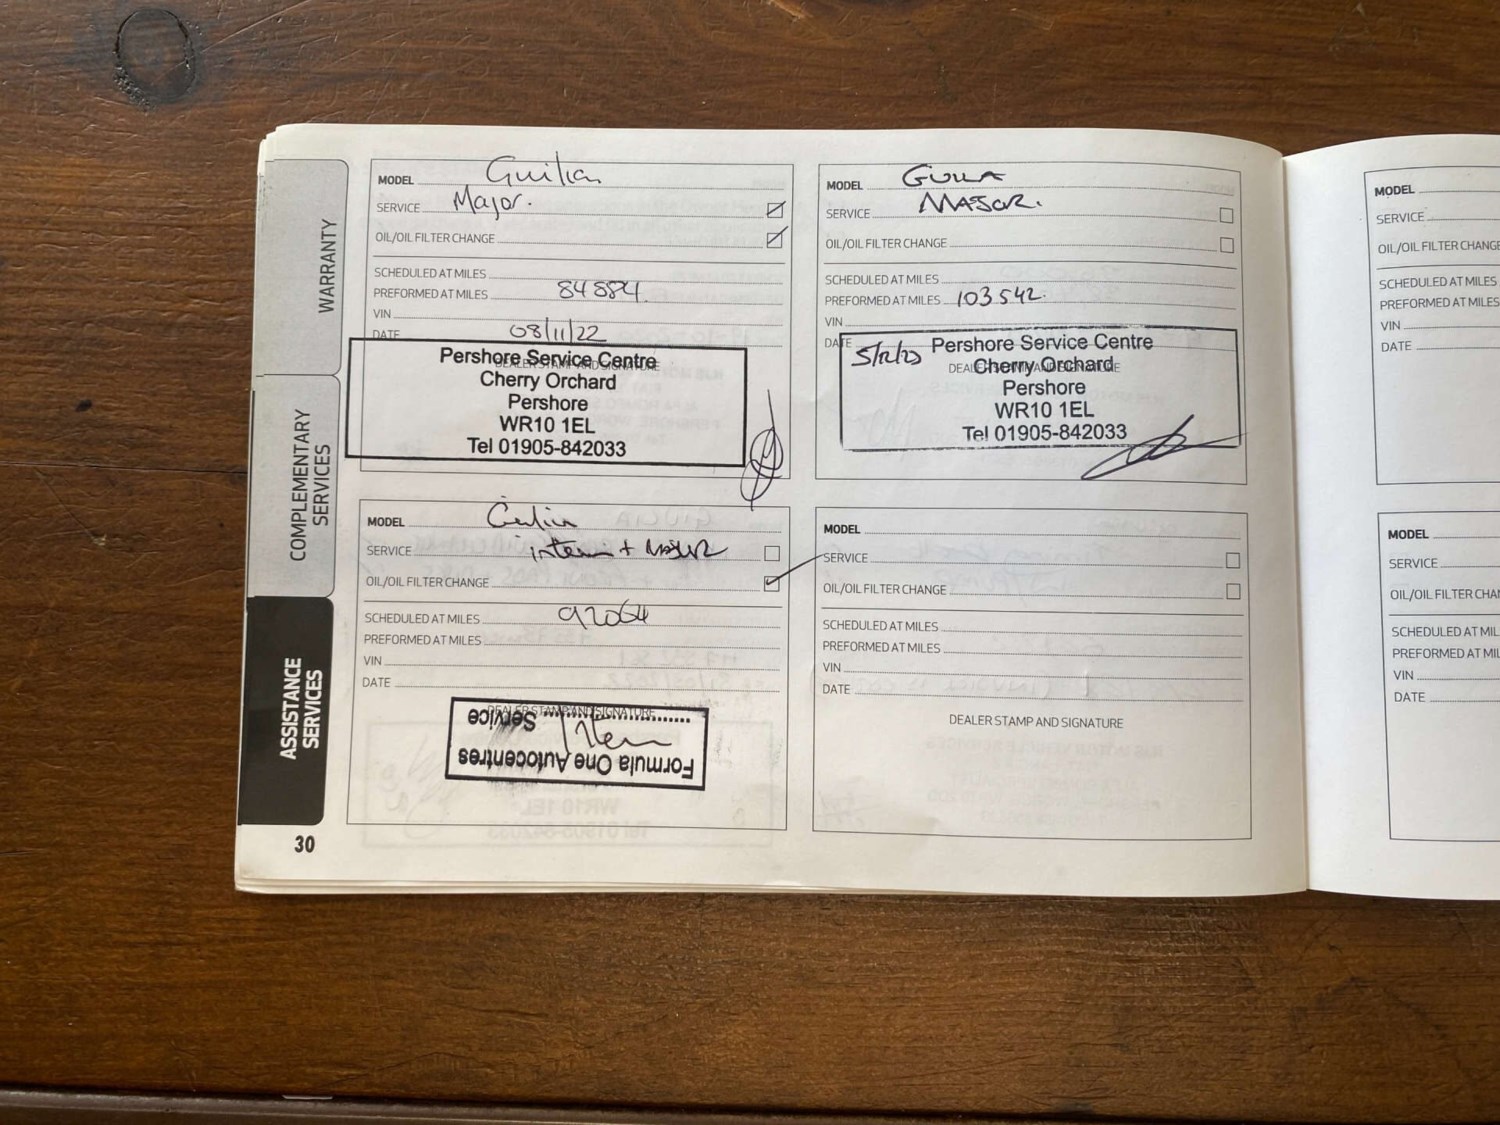 WARRANTY
COMPLEMENTARY
SERVICES
ASSISTANCE
SERVICES
30
MODEL Guilia
SERVICE Major.
OIL/OIL FILTER CHANGE
SCHEDULED AT MILES
PREFORMED AT MILES 84884.
VIN
DATE 08/11/22
DEALER STAMP AND SIGNATURE
Pershore Service Centre
Cherry Orchard
Pershore
WR10 1EL
Tel 01905-842033
MODEL
SERVICE MAJOR.
OIL/OIL FILTER CHANGE
SCHEDULED AT MILES
PREFORMED AT MILES 103542.
VIN
DATE 5/12/23
DEALER STAMP AND SIGNATURE
Pershore Service Centre
Cherry Orchard
Pershore
WR10 1EL
Tel 01905-842033
MODEL
SERVICE
OIL/OIL FILTER CHANGE
SCHEDULED AT MILES 92064
PREFORMED AT MILES
VIN
DATE
DEALER STAMP AND SIGNATURE
Formula One Autocentres
Service
MODEL
SERVICE
OIL/OIL FILTER CHANGE
SCHEDULED AT MILES
PREFORMED AT MILES
VIN
DATE
DEALER STAMP AND SIGNATURE
MODEL
SERVICE
OIL/OIL FILTER CHANGE
SCHEDULED AT MILES
PREFORMED AT MILES
VIN
DATE
MODEL
SERVICE
OIL/OIL FILTER CHA
SCHEDULED AT MIL
PREFORMED AT MIL
VIN
DATE